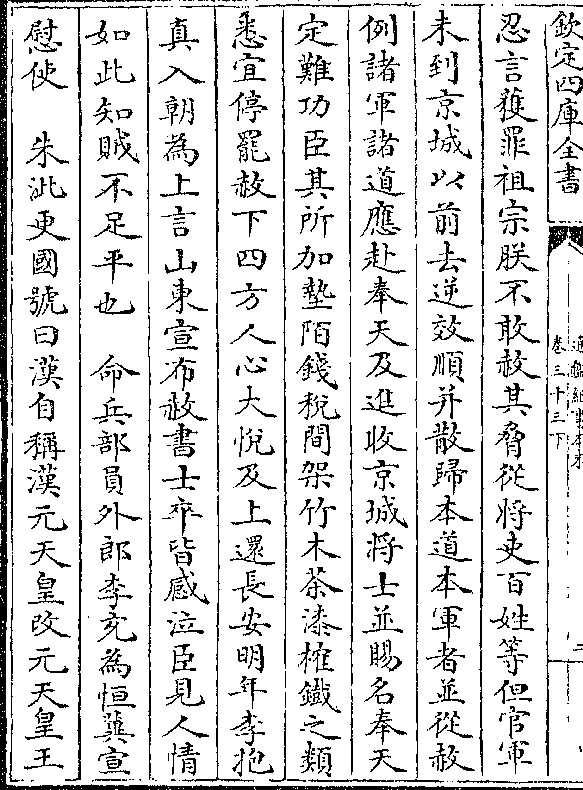 欽定四庫全書
卷三十三下
忍言獲罪祖宗朕不敢赦其脅從將吏百姓等但官軍
未到京城以前去逆效順并散歸本道本軍者並從赦
例諸軍諸道應赴奉天及進收京城將士並賜名奉天
定難功臣其所加墊陌錢稅間架竹木茶漆榷鐵之類
悉宜停罷赦下四方人心大悅及上還長安明年李抱
真入朝為上言山東宣布赦書士卒皆感泣臣見人情
如此知賊不足平也　命兵部員外郎李充為恒冀宣
慰使　朱泚更國號曰漢自稱漢元天皇改元天皇王